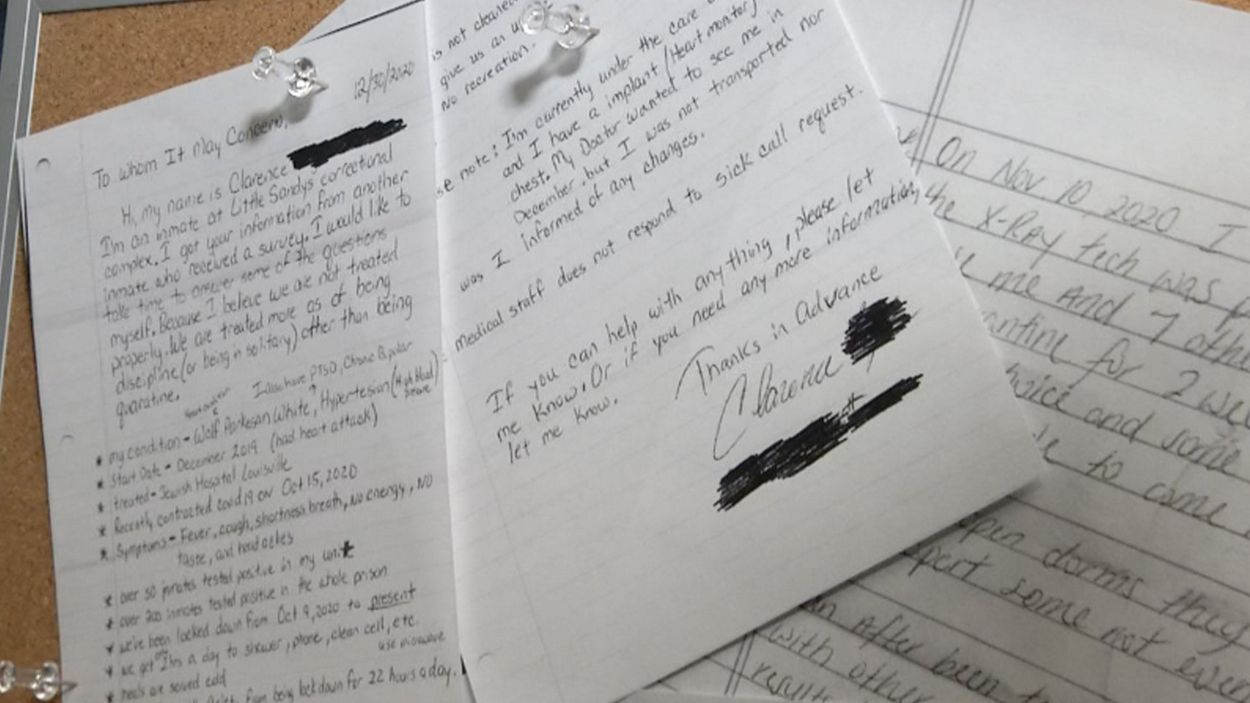 12/30/2020
To whom It May Concern,
Hi, my name is Clarence
I'm an inmate at Little Sandys correctional
complex. I got your information from another
inmate who received a survey. I would like to
take time to answer some of the questions
myself. Because I believe we are not treated
properly. We are treated more as of being
discipline (or being in solitary) other than being
quaratine.
I also have PTSD, Chronic Bipolar
* my condition - Wolf Parkesan White, Hypertesian (High blood
* Start Date - December 2019. (had heart attack)
* treated - Jewish Hospital Louisville
* Recently contracted covid 19 on Oct 15, 2020
* Symptoms - Fever, cough, shortness breath, No energy, NO
taste, and head aches
* over 50 inmates tested positive in my unit
* over 200 inmates tested positive in the whole prison
* we've been locked down from Oct 9, 2020 to present
* we get only 2hrs a day to shower, phone, clean cell, etc.
use microwave
* meals are served cold
from being lockdown for 22 hours a day.
is not cleaned
give us an
No recreation.
se note: I'm currently under the care
and I have a implant (Heart monitor)
chest. My Doctor wanted to see me in
December, but I was not transported nor
was I informed of any changes.
medical staff does not respond to sick call request.
If you can help with anything, please let
me know. Or if you need any more information,
let me know.
Thanks in Advance
Clarence
On Nov 10, 2020 I
the X-Ray tech was
me And 7 othe
antine for 2 wee
twice and some
to come
open dorms they
some not even
After been
with other
results